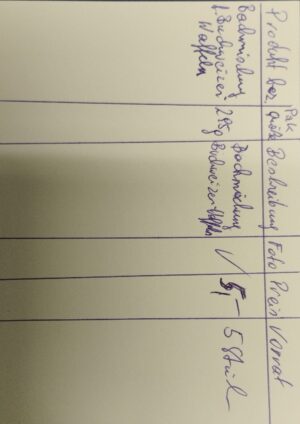 Produkt bez.
Pak
größe
Beschreibung
Foto
Preis
Vorrat
Backmischung
f. Buchweizen
Waffeln
295g
Backmischung
Buchweizen Waffeln
✓
5,-
5 Stück